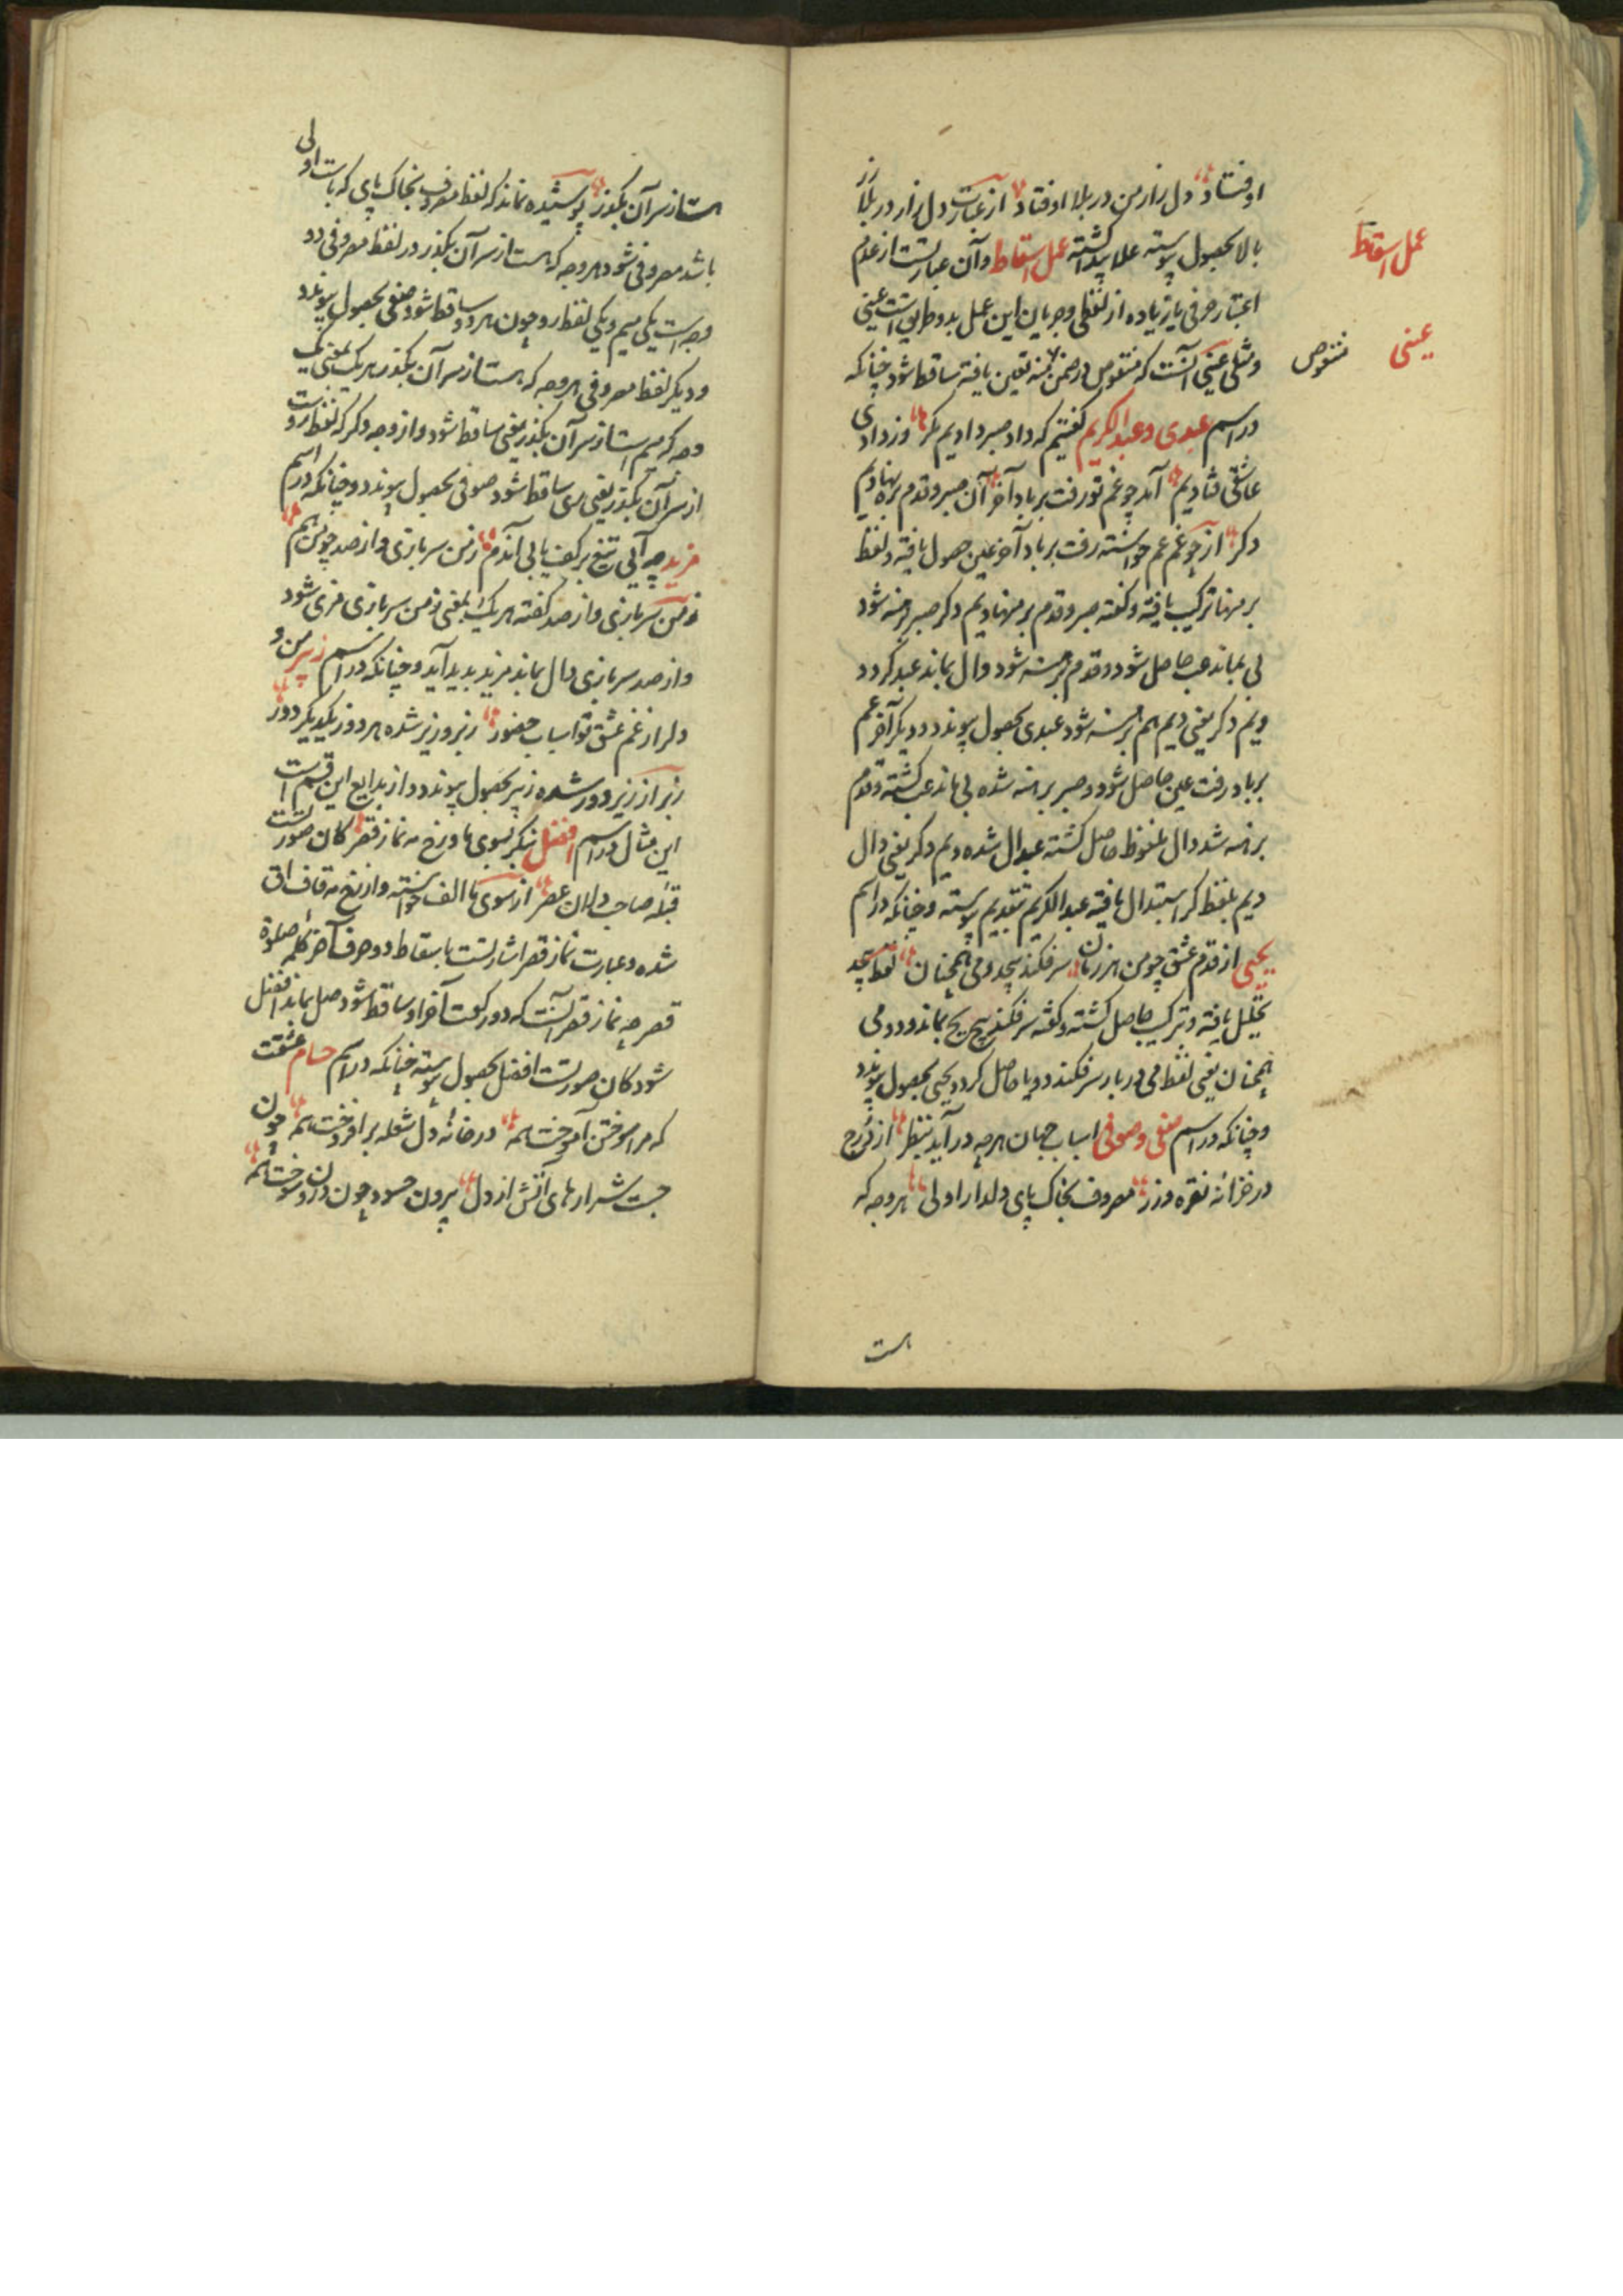 اوفتاد دل زار من در بلا اوفتاد از عبارت دل زار در بلا زر
بالا بحصول پیوسته علا پیدا گشته عمل اسقاط وآن عبارتست از عدم
عمل اسقاط
اعتبار حرفی یا زیاده از لفظی وجریان این عمل بدو طریق است عینی
ومثلی عینی آنست که منقوص در ضمن تعین یافته ساقط شود چنانکه
عینی
منقوص
در اسم عبدی وعبدالکریم گفتیم که داد صبر دادیم دکر وز وادی
عاشقی فتادیم آمد چو غم تو رفت بر باد آخر آن صبر وقدم بره نهادیم
دکر از چو غم عم خواسته رفت بر باد آخر عین حصول یافته ولفظ
برهنها ترکیب یافته وگفته صبر وقدم برهنهادیم دکر صبر برهنه شود
بی بماند عب حاصل شود وقدم برهنه شود دال بماند عبد کردد
ودیم دکر یعنی دیم هم برهنه شود عبدی بحصول پیوندد ودیکر آخر عم
بر باد رفت عین حاصل شود وصبر برهنه شده بی ماند عب گشته وقدم
برهنه شد دال ملفوظ حاصل گشته عبدال شده ودیم دکر یعنی دال
دیم بلفظ کر استبدال یافته عبدالکریم بتقدیم پیوسته وچنانکه در اسم
یحیی از قدم عشق چو من هر زمان سر فکند پیچد ومی همچنان لفظ پیچد
تحلیل یافته وترکیب حاصل گشته وگفته سر فکند پیچ یح بماند ودومی
همچنان یعنی لفظ می دو بار سر فکند دو یا حاصل کردد یحیی بحصول پیوندد
وچنانکه در اسم صفی وصوفی اسباب جهان هرچه در آید بنظر از درج
در خزانه نقره وزر مصروف بخاک پای دلدار اولی هر وجه که
هست
هست از سر آن بکذر پوشیده نماند که لفظ مصروف بخاک پای که با ست اولی
باشد مصروفی شود هر وجه که هست از سر آن بکذر در لفظ مصروفی دو
وجه است یکی میم ویکی لفظ رو چون هر دو ساقط شود صفی بحصول پیوندد
ودیکر لفظ مصروفی هر وجه که هست از سر آن بکذر هر یک بمعنی یک
وجه که میم است از سر آن بکذر یعنی ساقط شود واز وجه دکر که لفظ روست
از سر آن بکذر یعنی ری ساقط شود صوفی بحصول پیوندد وچنانکه در اسم
مزید چه آیی تیغ بر کف یابی آندم زمن سربازی واز صد چو من هم
زمن سربازی واز صد گفته هر یک بمعنی زمن سربازی مزی شود
واز صد سربازی دال بماند مزید پدید آید وچنانکه در اسم زبیر من و
دلرا ز غم عشق تو اسباب حضور زبر وزیر شده هر دو ز یکدیکر دور
زبر از زیر دور شده زبیر بحصول پیوندد واز بدایع این قسم است
این مثال در اسم افضل بنکر بسوی ما ورخ مه نماز قصر کان صورتست
قبلهٔ صاحب دلان عصر از سوی ما الف خواسته واز رخ مه قاف
شده وعبارت نماز قصر اشارتست باسقاط دو حرف آخر کلمهٔ صلوة
قصر چه نماز قصر آنست که دو رکعت آخر او ساقط شود صل بماند افضل
شود کان صورتست افضل بحصول پیوسته چنانکه در اسم حسام عشقت
که مرا سوختن آموخته‌ایم در خانهٔ دل شعله بر افروخته‌ایم چون
جست شرارهای آتش از دل بیرون حسود چون درون سوخته‌ایم